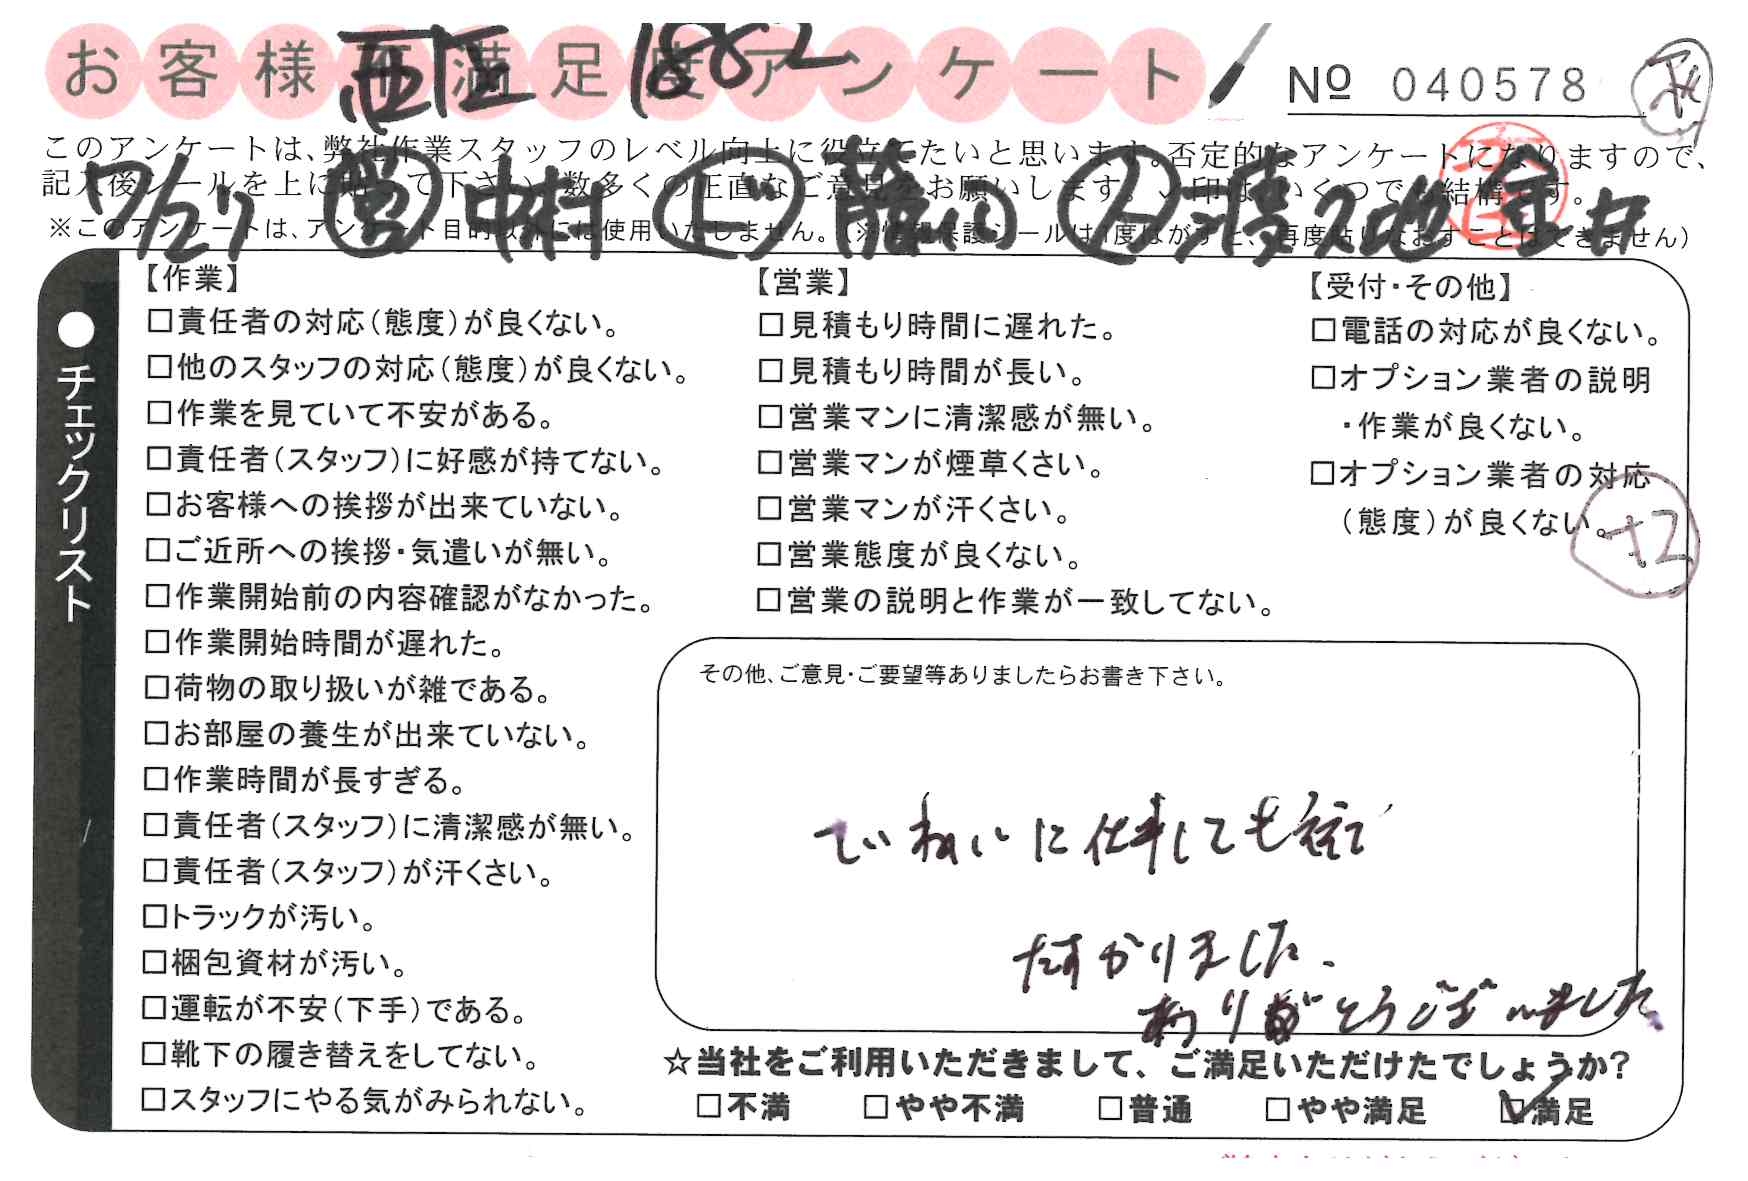 お客様満足度アンケート
西区 1882
№ 040578
このアンケートは、弊社作業スタッフのレベル向上に役立てたいと思います。否定的なアンケートになりますので、
記入後シールを上に貼って下さい。数多くの正直なご意見をお願いします。✓印は、いくつでも結構です。
7/27 営 中村
※このアンケートは、アンケート目的以外には使用いたしません。(※情報保護シールは1度はがすと、再度貼りなおすことはできません)
●チェックリスト
【作業】
□責任者の対応(態度)が良くない。
□他のスタッフの対応(態度)が良くない。
□作業を見ていて不安がある。
□責任者(スタッフ)に好感が持てない。
□お客様への挨拶が出来ていない。
□ご近所への挨拶・気遣いが無い。
□作業開始前の内容確認がなかった。
□作業開始時間が遅れた。
□荷物の取り扱いが雑である。
□お部屋の養生が出来ていない。
□作業時間が長すぎる。
□責任者(スタッフ)に清潔感が無い。
□責任者(スタッフ)が汗くさい。
□トラックが汚い。
□梱包資材が汚い。
□運転が不安(下手)である。
□靴下の履き替えをしてない。
□スタッフにやる気がみられない。
【営業】
□見積もり時間に遅れた。
□見積もり時間が長い。
□営業マンに清潔感が無い。
□営業マンが煙草くさい。
□営業マンが汗くさい。
□営業態度が良くない。
□営業の説明と作業が一致してない。
【受付・その他】
□電話の対応が良くない。
□オプション業者の説明
・作業が良くない。
□オプション業者の対応
(態度)が良くない。
+2
その他、ご意見・ご要望等ありましたらお書き下さい。
ていねいに仕事しても
たすかりました。
ありがとうございました
☆当社をご利用いただきまして、ご満足いただけたでしょうか?
□不満 □やや不満 □普通 □やや満足 ☑満足